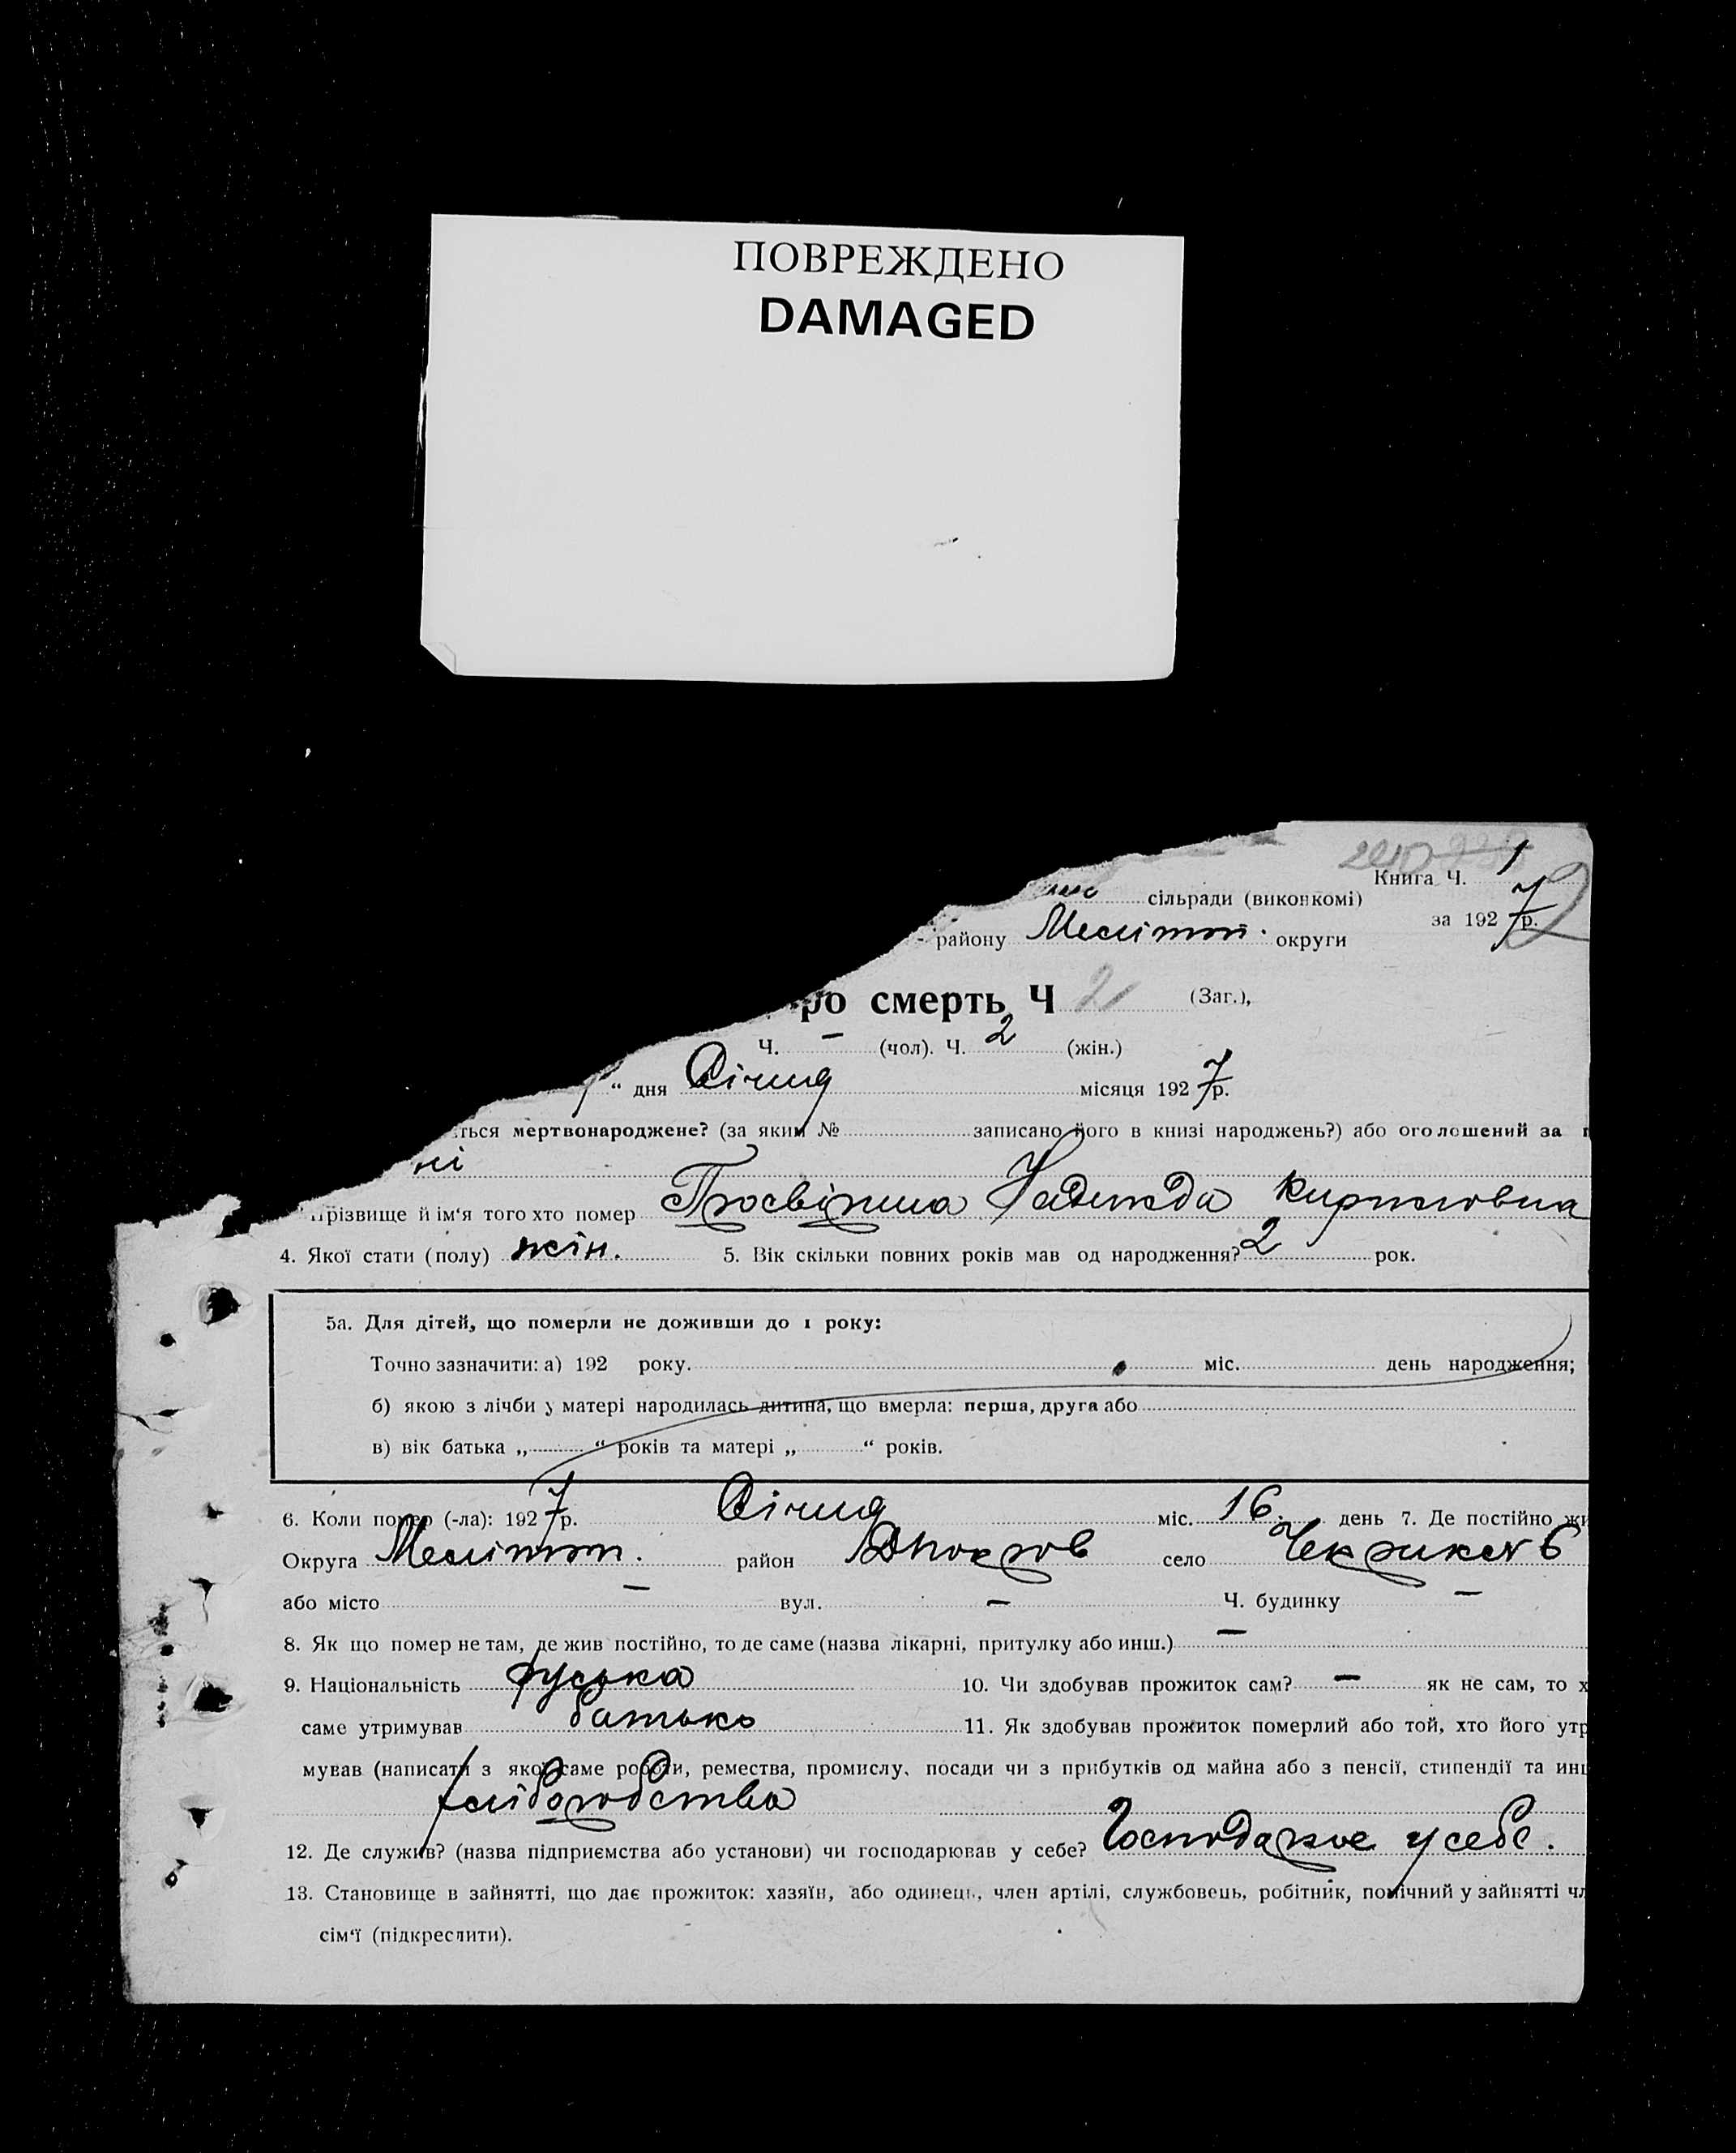 ПОВРЕЖДЕНО
DAMAGED
Книга Ч. 1
сільради (виконкомі)
за 1927 р.
району Мелітоп. округи
про смерть Ч 2 (Заг.),
Ч. — (чол). Ч. 2 (жін.)
“ дня Січня місяця 1927 р.
ться мертвонароджене? (за яким № записано його в книзі народжень?) або оголошений за
ні
прізвище й ім‘я того хто помер Просвірина Надежда Кириловна
4. Якої стати (полу) жін. 5. Вік скільки повних років мав од народження? 2 рок.
5а. Для дітей, що померли не доживши до 1 року:
Точно зазначити: а) 192 року. міс. день народження;
б) якою з лічби у матері народилась дитина, що вмерла: перша, друга або
в) вік батька „ “ років та матері „ “ років.
6. Коли помер (-ла): 1927 р. Січня міс. 16. день 7. Де постійно жи
Округа Мелітоп. район село
або місто — вул. — Ч. будинку —
8. Як що помер не там, де жив постійно, то де саме (назва лікарні, притулку або инш.) —
9. Національність руська 10. Чи здобував прожиток сам? — як не сам, то х
саме утримував батько 11. Як здобував прожиток померлий або той, хто його утр
мував (написати з якої саме роботи, ремества, промислу, посади чи з прибутків од майна або з пенсії, стипендії та инш
хліборобства
12. Де служив? (назва підприємства або установи) чи господарював у себе? Господарює у себе.
13. Становище в зайнятті, що дає прожиток: хазяїн, або одинець, член артілі, службовець, робітник, помічний у зайнятті чл
сім‘ї (підкреслити).